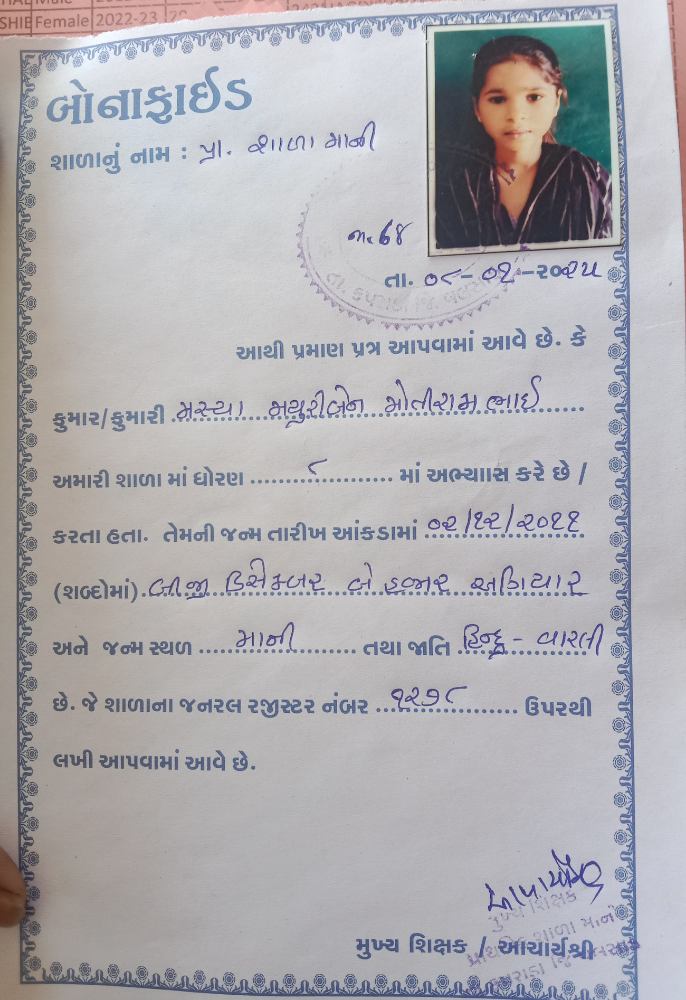 SHIE Female 2022-23
બોનાફાઈડ
શાળાનું નામ : પ્રા. શાળા માની
નં. 68
તા. ૦૮-૦૧-૨૦૨૫
તા. કપરાડા જિ. વલસાડ
આથી પ્રમાણ પત્ર આપવામાં આવે છે. કે
કુમાર/કુમારી મસ્યા મયુરીબેન મોતીરામભાઈ
અમારી શાળા માં ધોરણ ૮ માં અભ્યાાસ કરે છે /
કરતા હતા. તેમની જન્મ તારીખ આંકડામાં ૦૨/૧૨/૨૦૧૧
(શબ્દોમાં). બીજી ડિસેમ્બર બે હજાર અગિયાર
અને જન્મ સ્થળ માની તથા જાતિ હિન્દુ - વારલી
છે. જે શાળાના જનરલ રજીસ્ટર નંબર ૧૨૭૮ ઉપરથી
લખી આપવામાં આવે છે.
મુખ્ય શિક્ષક
પ્રાથમિક શાળા માની
મુખ્ય શિક્ષક / આચાર્યશ્રી